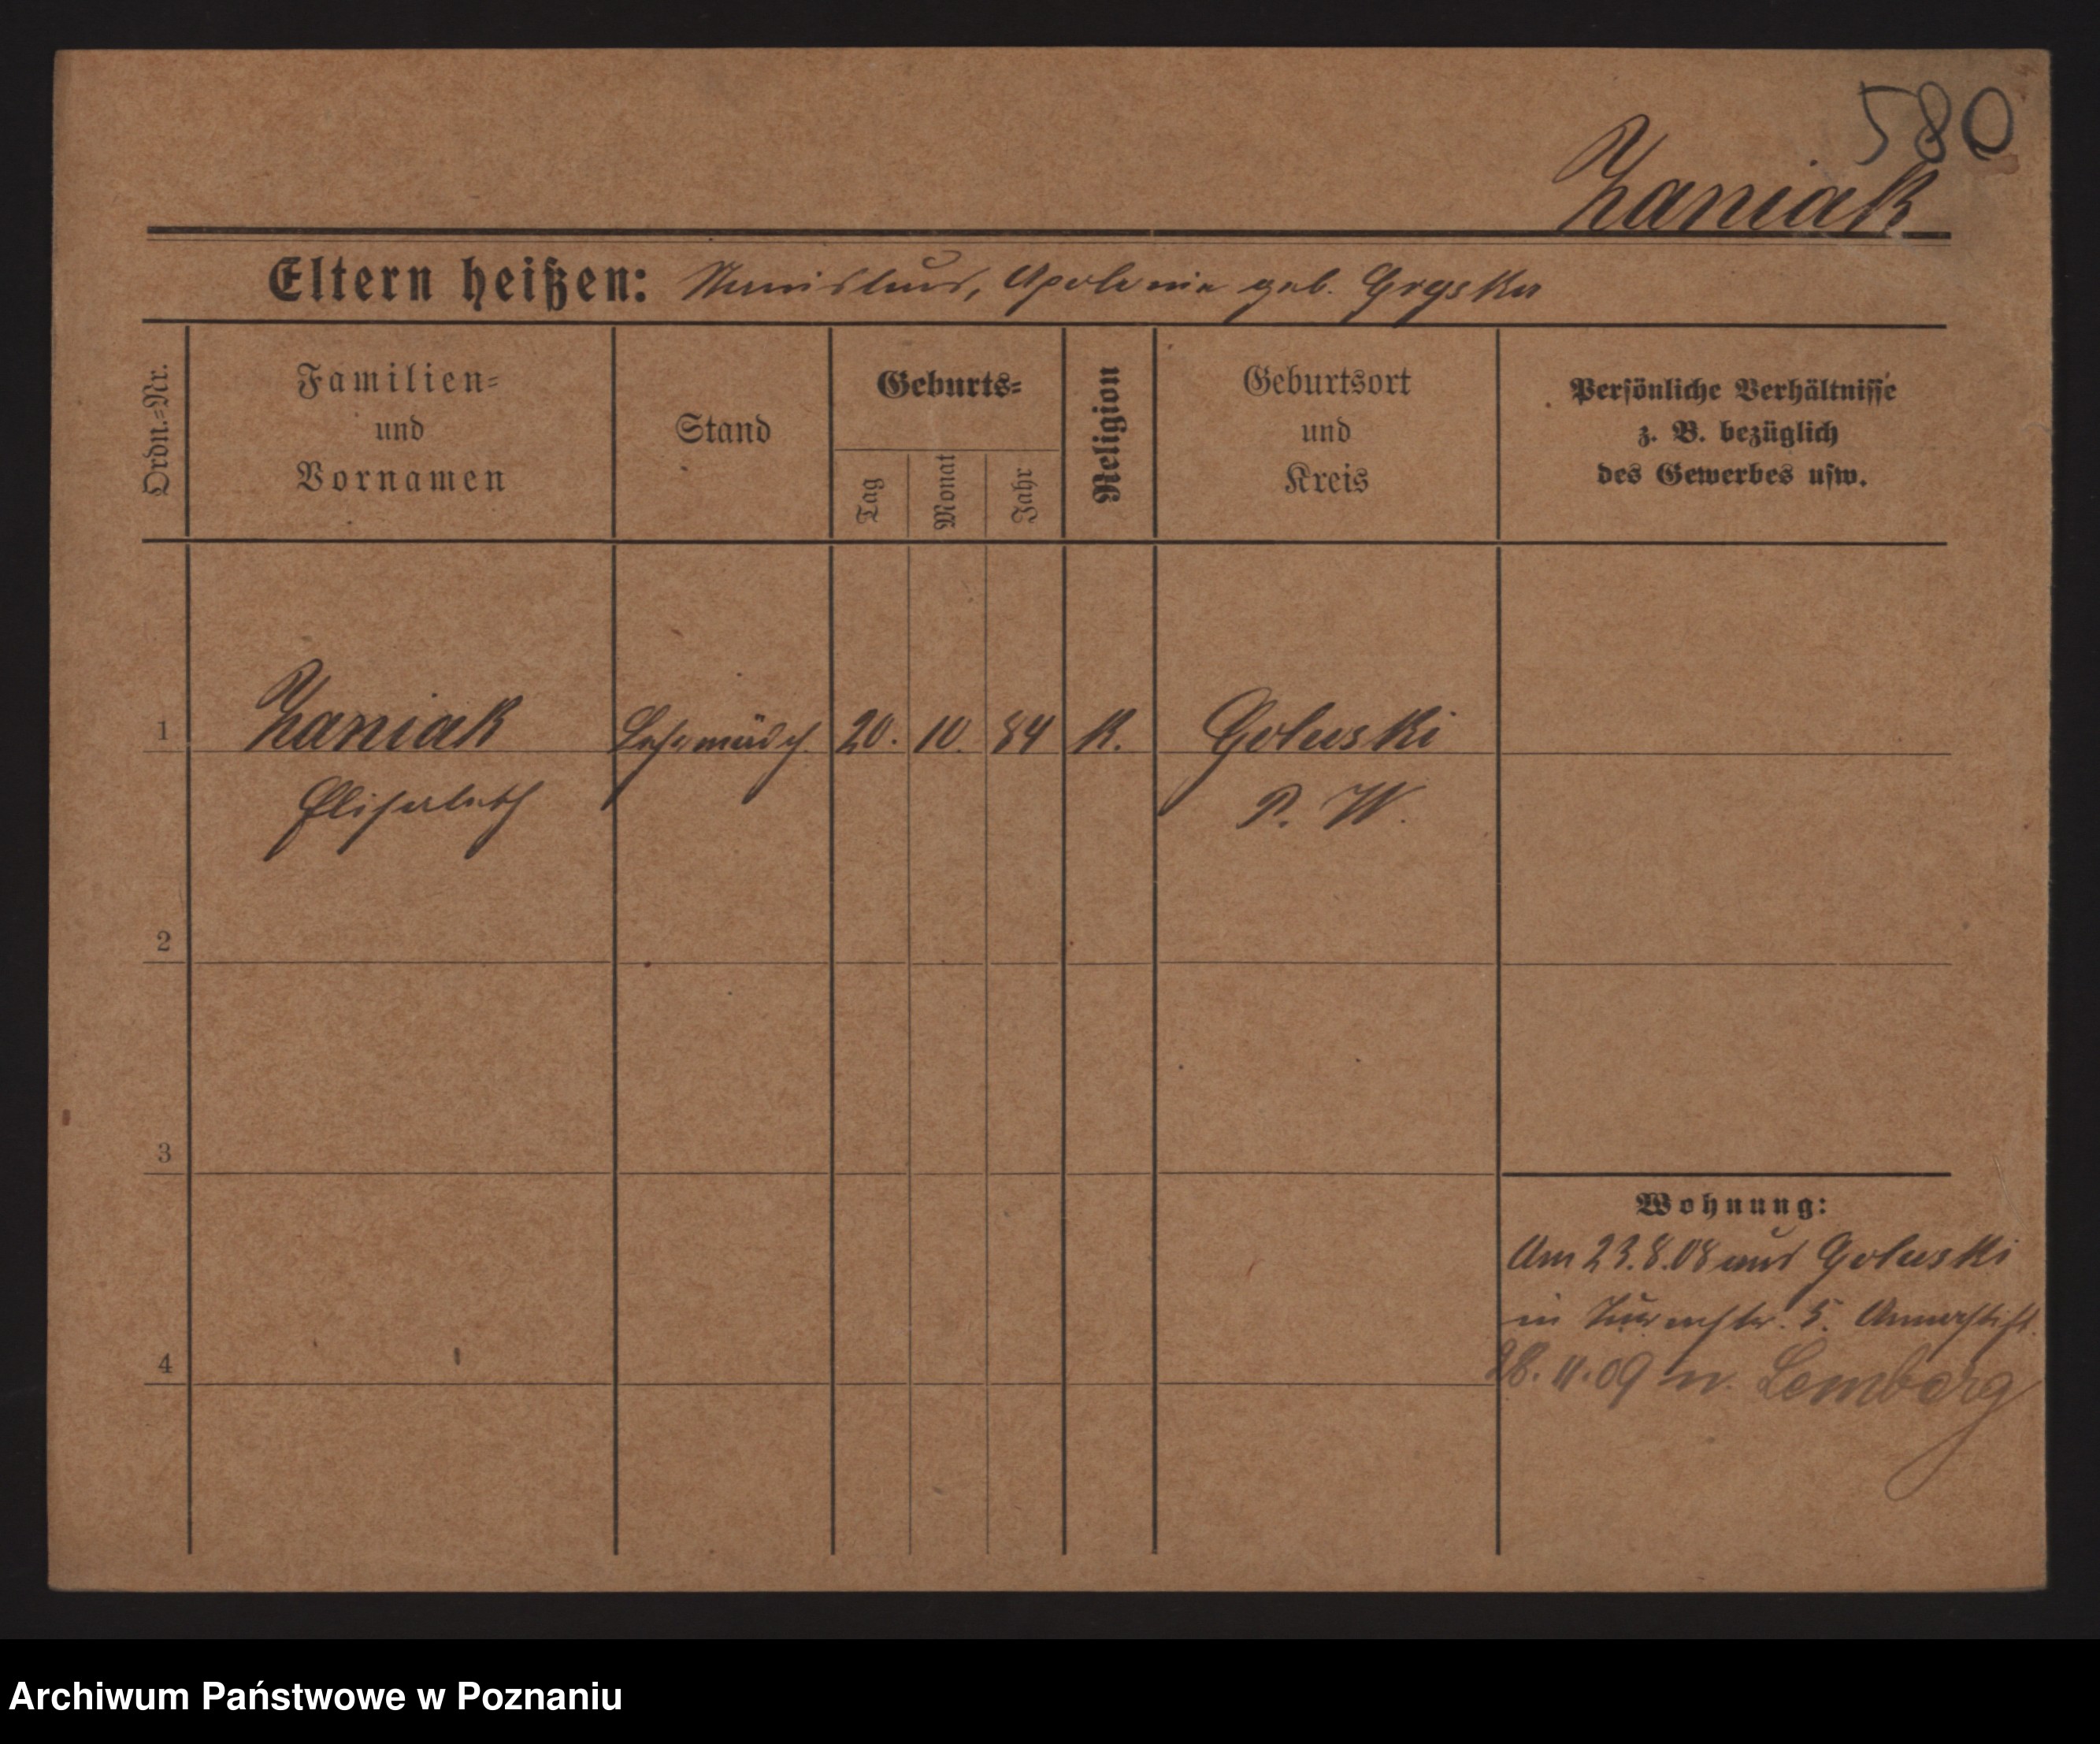 580
Zaniak
Eltern heißen: Stanislaus, Apolonia geb. Gryska
Ordn.-Nr.
Familien-
und
Vornamen
Stand
Geburts-
Tag
Monat
Jahr
Religion
Geburtsort
und
Kreis
Persönliche Verhältnisse
z. B. bezüglich
des Gewerbes usw.
1 Zaniak 20. 10. 84 K. Goluski
Elisabeth P. W.
2
3
4
Wohnung:
Am 23.8.08 aus Goluski
in 5. Annastift.
28.11.09 n. Lemberg
Archiwum Państwowe w Poznaniu